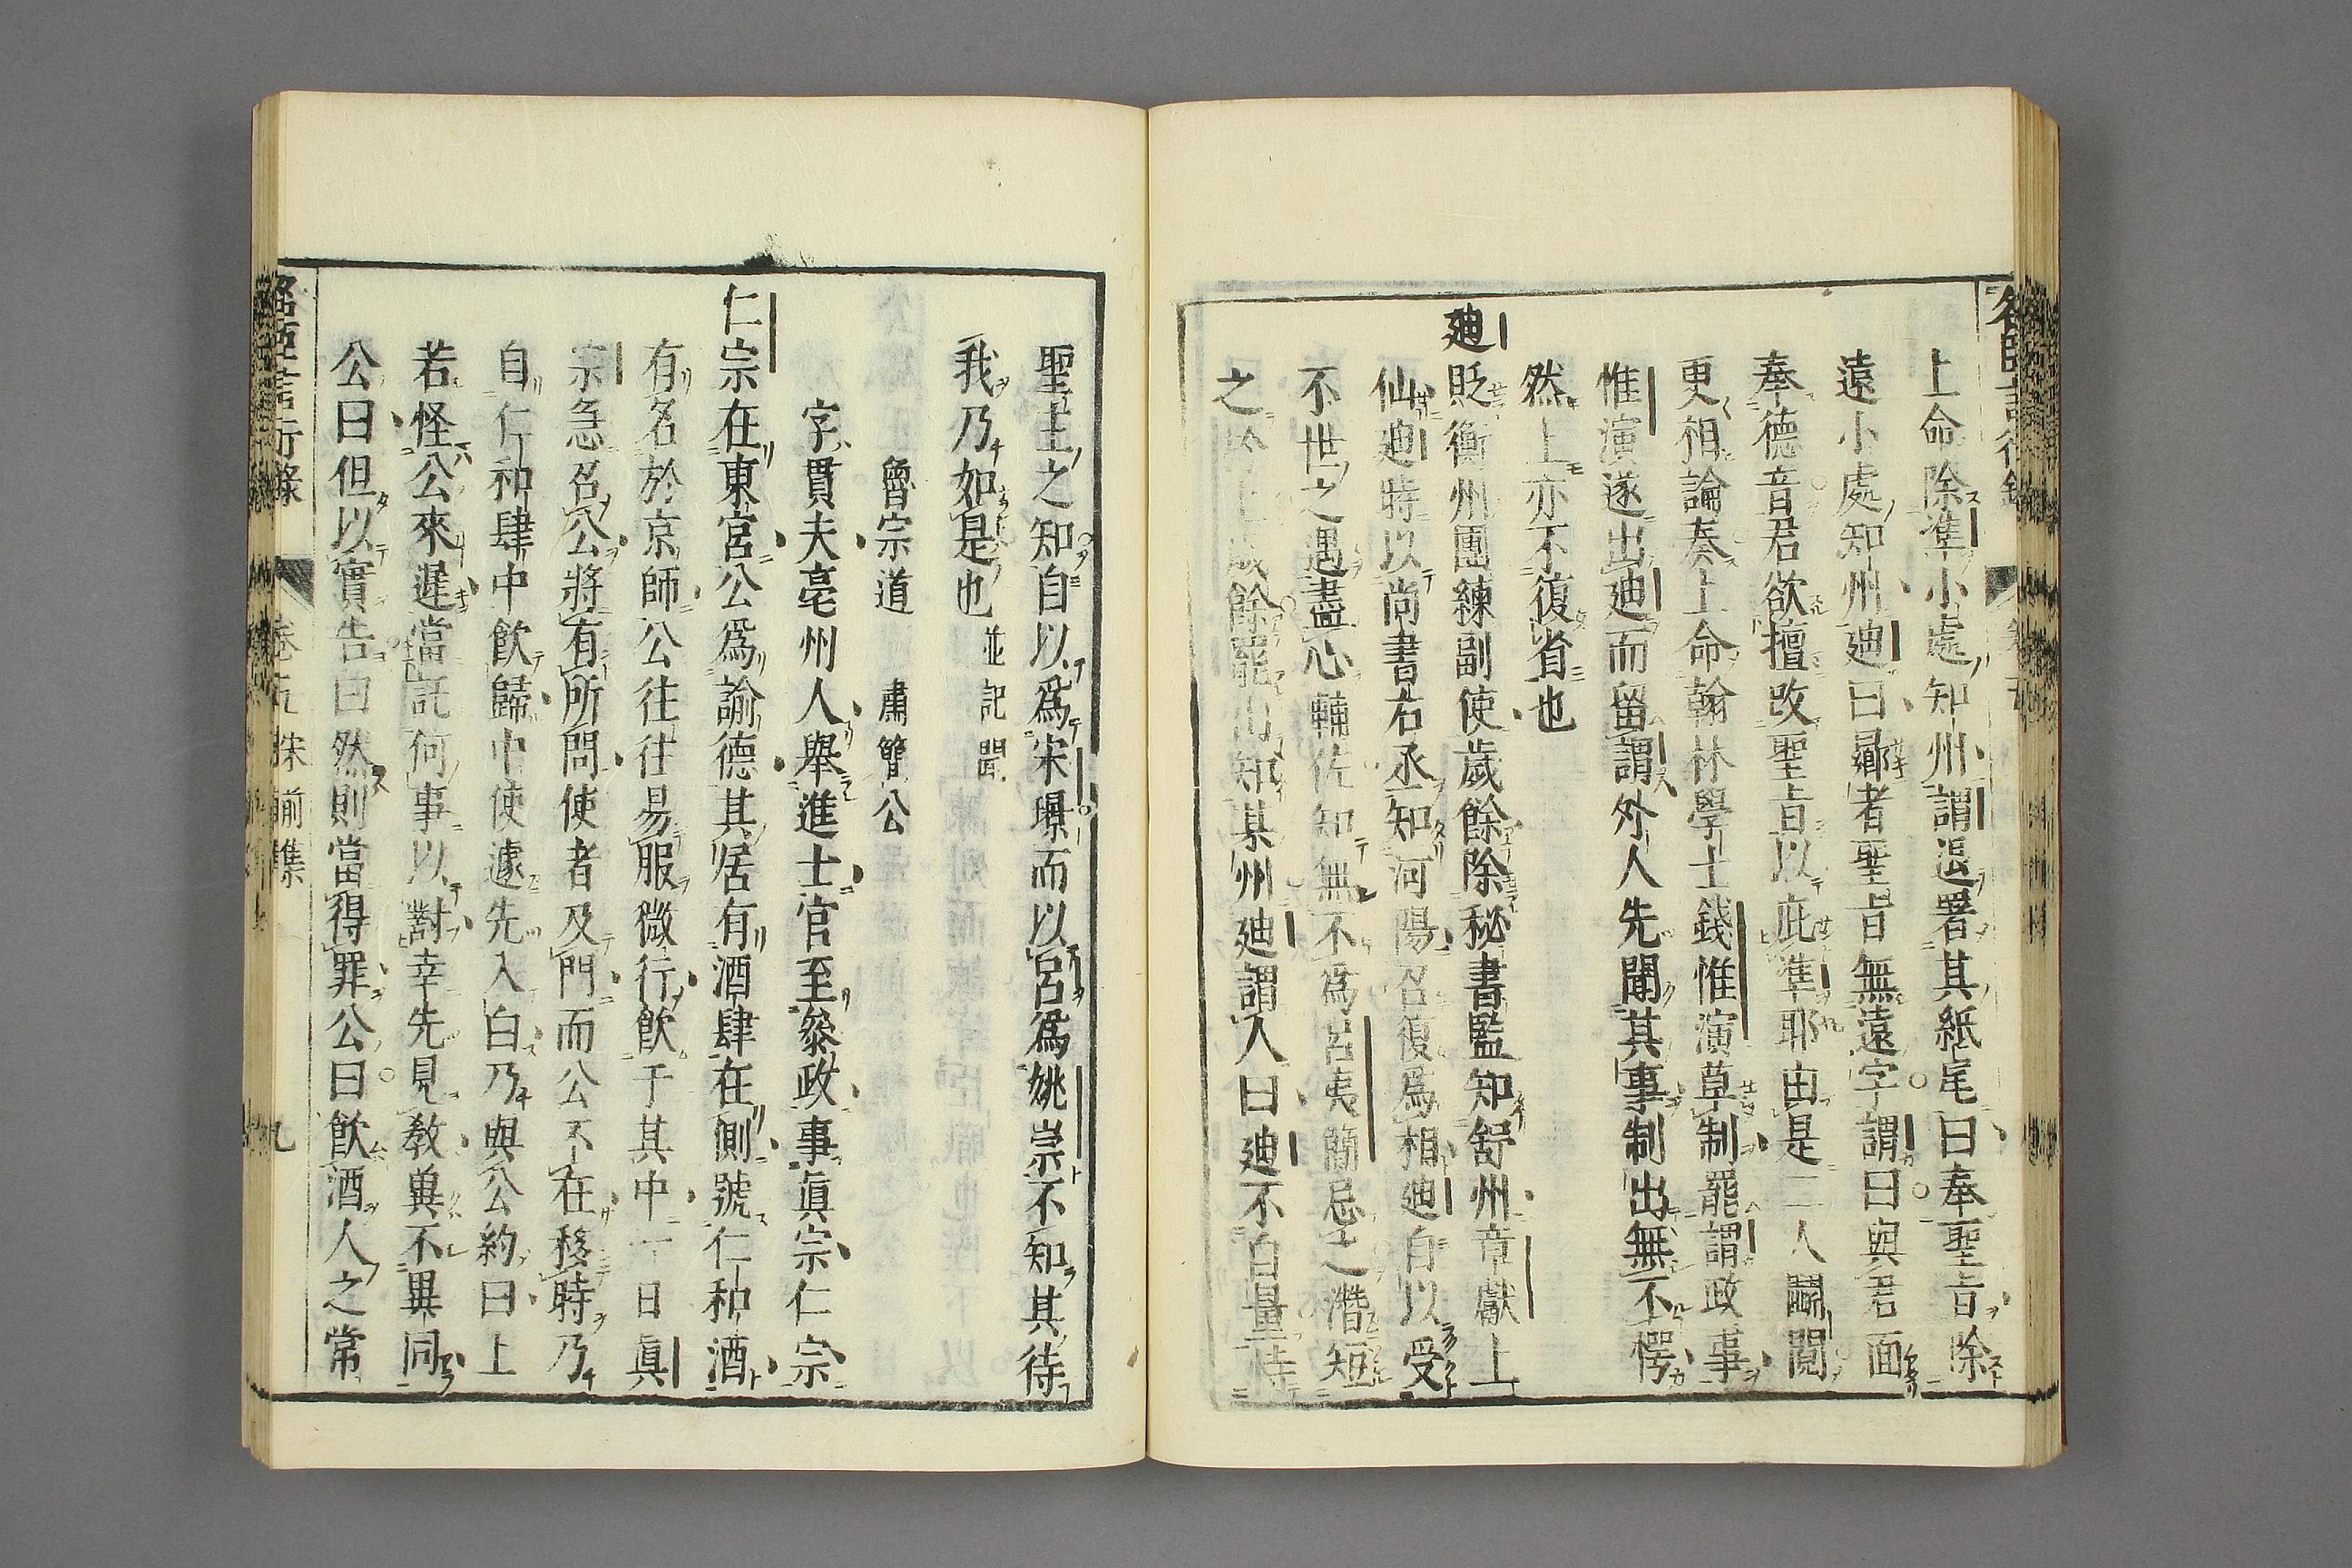 上命除準小處知州謂退署其紙尾曰奉聖旨除
遠小處知州廸曰曏者聖旨無遠字謂曰與君面
奉德音君欲擅改聖旨以庇準耶由是二人鬪鬩
更相論奏上命翰林學士錢惟演草制罷謂政事
惟演遂出廸而留謂外人先聞其事制出無不愕
然上亦不復省也
廸貶衡州團練副使歲餘除秘書監知舒州章獻上
仙廸時以尚書右丞知河陽召復爲相廸自以受
不世之遇盡心輔佐知無不爲呂夷簡忌之潛短
之於上歲餘罷出知某州廸謂人曰廸不自量恃
聖主之知自以爲宋璟而以呂爲姚崇不知其待
我乃如是也並記聞
魯宗道 肅簡公
字貫夫亳州人舉進士官至參政事眞宗仁宗
仁宗在東宮公爲諭德其居有酒肆在側號仁和酒
有名於京師公往往易服微行飮于其中一日眞
宗急召公將有所問使者及門而公不在移時乃
自仁和肆中飮歸中使遽先入白乃與公約曰上
若怪公來遲當託何事以對幸先見敎冀不異同
公曰但以實告曰然則當得罪公曰飮酒人之常
名臣言行錄 卷五 九